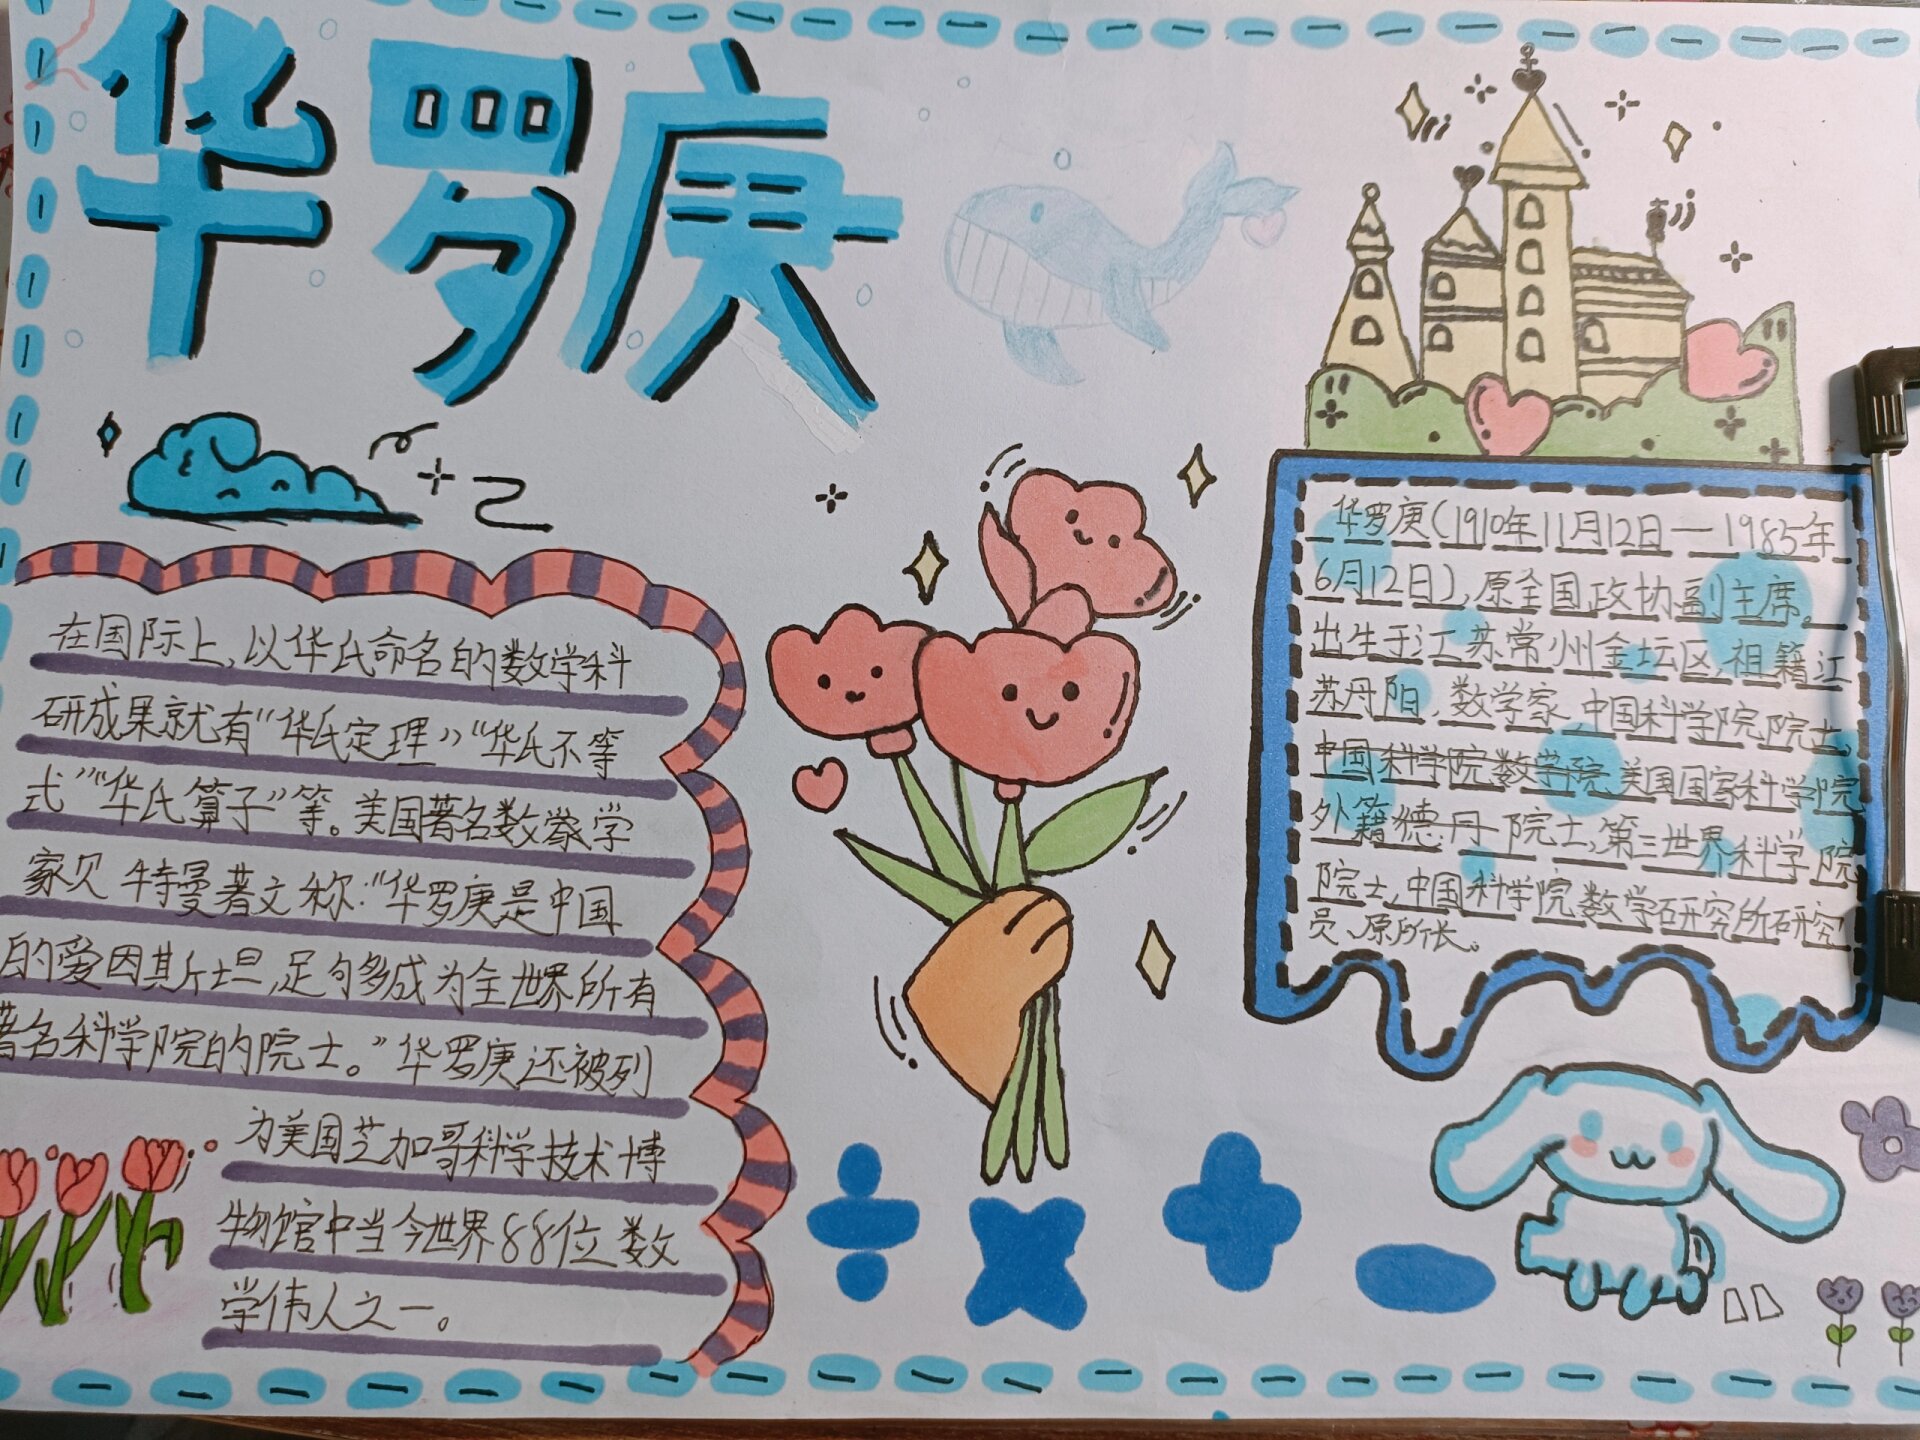 华罗庚
在国际上,以华氏命名的数学科
研成果就有“华氏定理”“华氏不等
式”“华氏算子”等。美国著名数学
家贝特曼著文称:“华罗庚是中国
的爱因斯坦,足够多成为全世界所有
著名科学院的院士。”华罗庚还被列
为美国芝加哥科学技术博
物馆中当今世界88位数
学伟人之一。
华罗庚(1910年11月12日—1985年
6月12日),原全国政协副主席。
出生于江苏常州金坛区,祖籍江
苏丹阳,数学家,中国科学院院士,
中国科学院数学院美国国家科学院
外籍德丹院士,第三世界科学院
院士,中国科学院数学研究所研究
员、原所长。